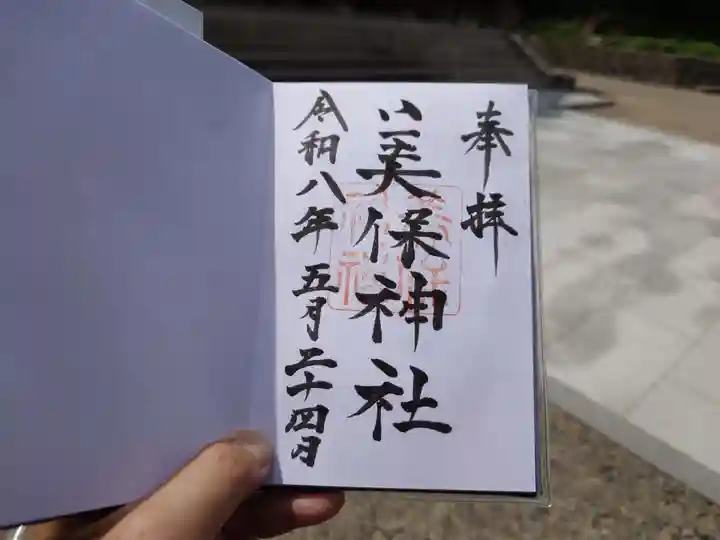 奉拝
美保神社
令和八年五月二十四日